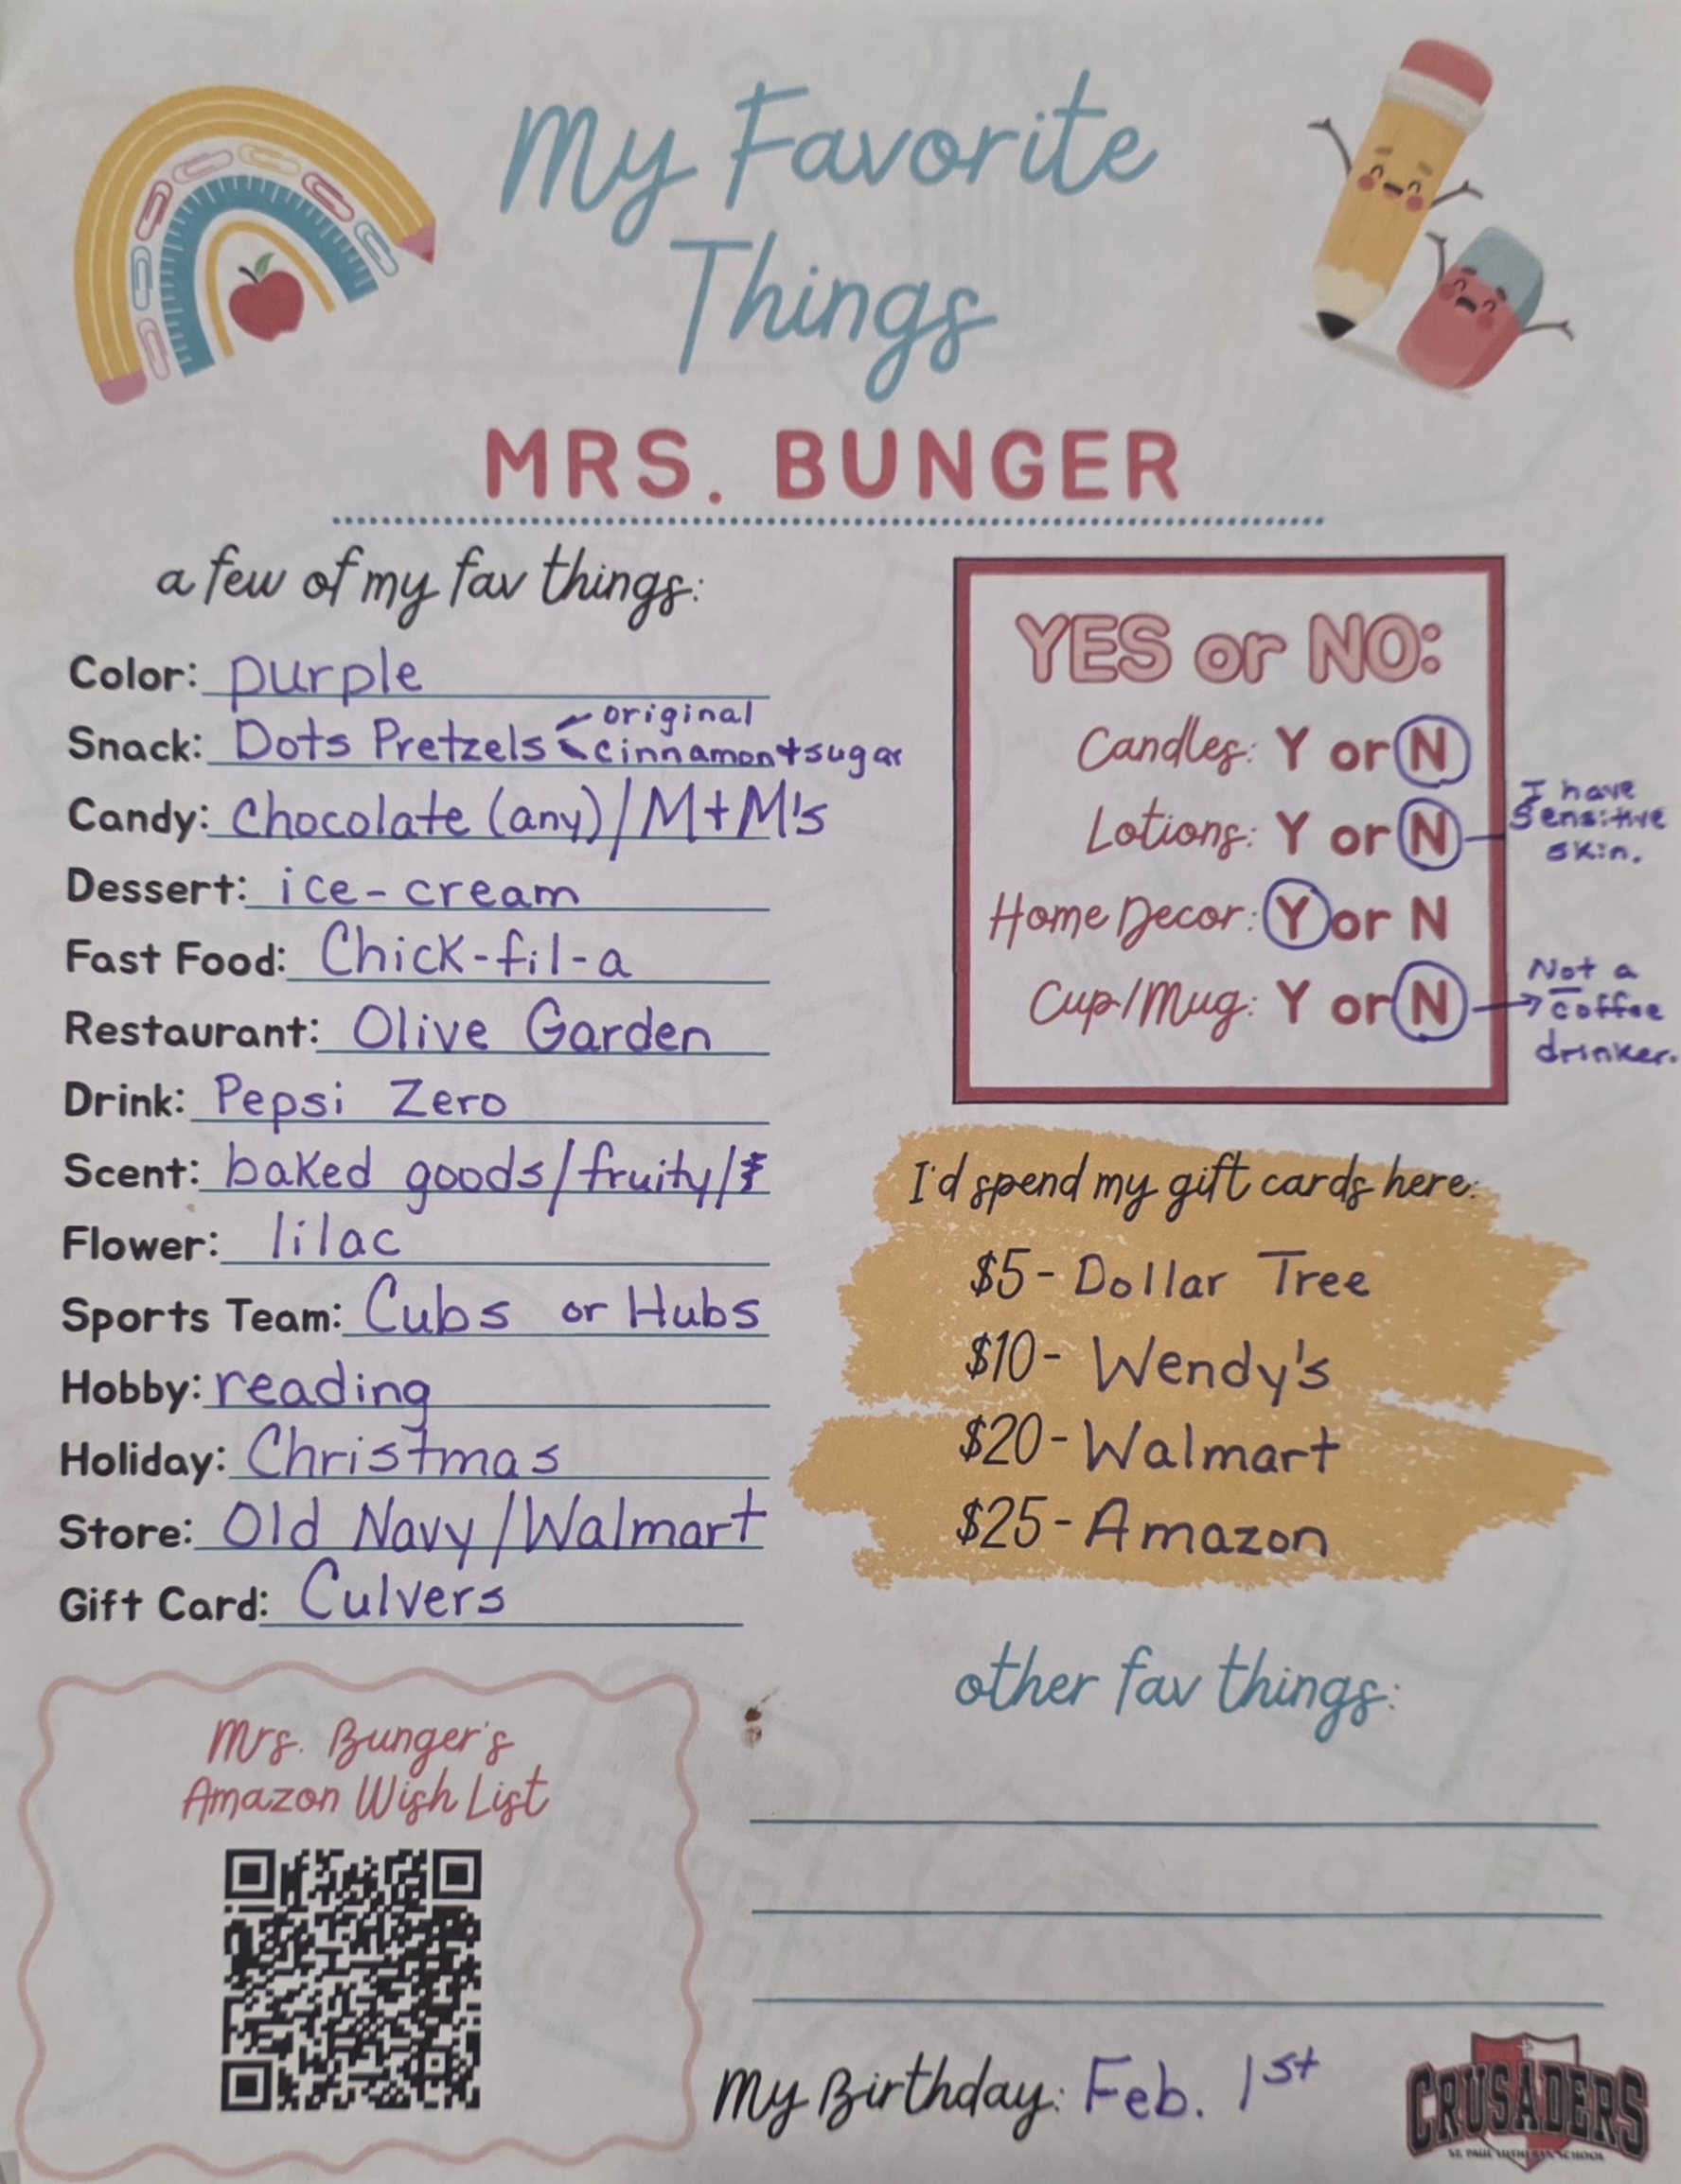 My Favorite
Things
MRS. BUNGER
a few of my fav things:
Color: purple
Snack: Dots Pretzels original
cinnamon+sugar
Candy: chocolate (any)/M+M's
Dessert: ice-cream
Fast Food: Chick-fil-a
Restaurant: Olive Garden
Drink: Pepsi Zero
Scent: baked goods/fruity/
Flower: lilac
Sports Team: Cubs or Hubs
Hobby: reading
Holiday: Christmas
Store: Old Navy/Walmart
Gift Card: Culvers
YES or NO:
Candles: Y or N
Lotions: Y or N
I have
sensitive
skin.
Home Decor: Y or N
Cup/Mug: Y or N
Not a
coffee
drinker.
I'd spend my gift cards here:
$5- Dollar Tree
$10- Wendy's
$20- Walmart
$25- Amazon
other fav things:
Mrs. Bunger's
Amazon Wish List
My Birthday: Feb. 1st
CRUSADERS
ST. PAUL LUTHERAN SCHOOL